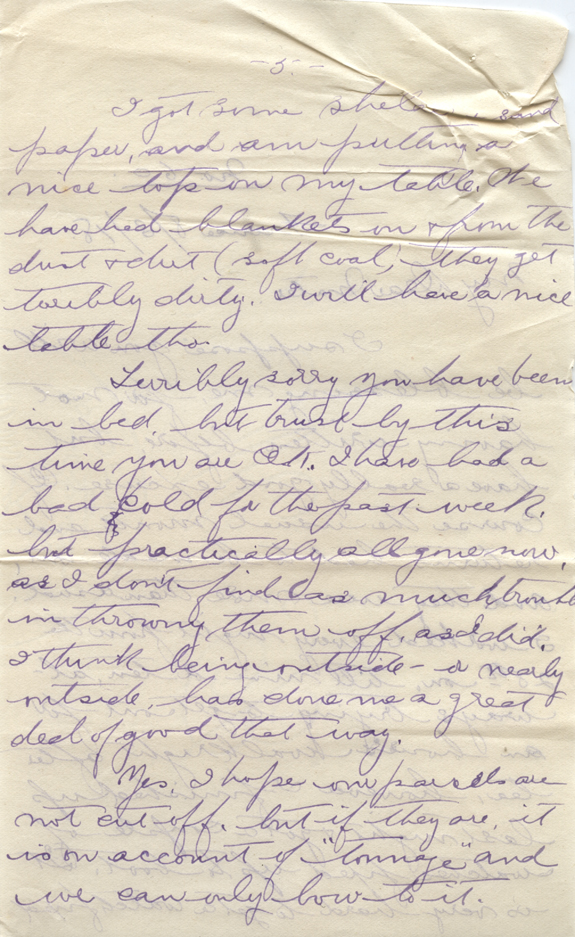 - 5. -
I got some shellac, sand
paper, and am putting a
nice top on my table. We
have had blankets on & from the
dust & dirt (soft coal) they get
terribly dirty. I will have a nice
table tho.
Terribly sorry you have been
in bed, but trust by this
time you are O.K. I have had a
bad cold for the past week.
but practically all gone now,
as I don't find as much trouble
in throwing them off, as I did.
I think being outside - or nearly
outside, has done me a great
deal of good that way.
Yes, I hope our parcels are
not cut off, but if they are, it
is on account of "tonnage" and
we can only bow to it.